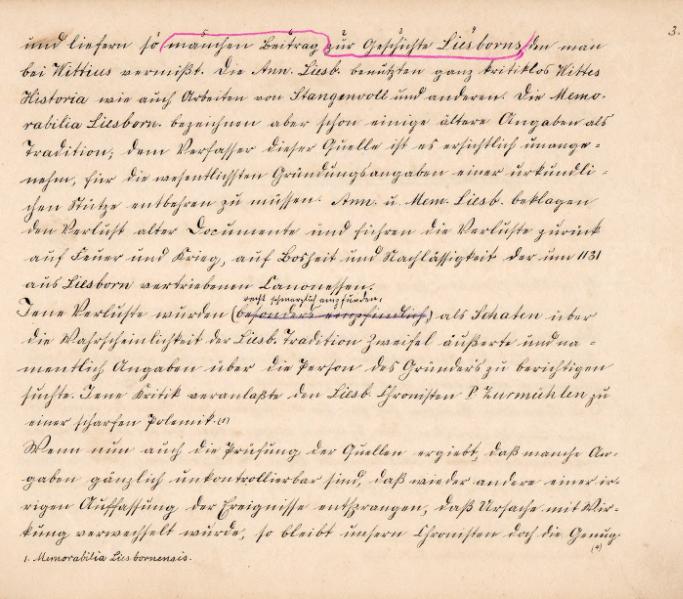 3.
und liefern so manchen Beitrag zur Geschichte Liesborns, den man
bei Wittius vermißt. Die Ann. Liesb. benutzten ganz kritiklos Wittes
Historia wie auch Arbeiten von Stangenvoll und anderen. Die Memo-
rabilia Liesborn. bezeichnen aber schon einige ältere Angaben als
Tradition; dem Verfasser dieser Quelle ist es ersichtlich unange-
nehm, für die wesentlichsten Gründungsangaben einer urkundli-
chen Stütze entbehren zu müssen. Ann. u. Mem. Liesb. beklagen
den Verlust alter Documente und führen die Verluste zurück
auf Feuer und Krieg, auf Bosheit und Nachlässigkeit der um 1131
aus Liesborn vertriebenen Canonessen.
recht schmerzlich empfunden,
Jene Verluste wurden (besonders empfindlich,) als Schaten über
die Wahrscheinlichkeit der Liesb. Tradition Zweifel äußerte und na-
mentlich Angaben über die Person des Gründers zu berichtigen
suchte. Jene Kritik veranlaßte den Liesb. Chronisten P. Zurmühlen zu
einer scharfen Polemik.
Wenn nun auch die Prüfung der Quellen ergiebt, daß manche An-
gaben gänzlich unkontrollierbar sind, daß wieder andere einer ir-
rigen Auffassung der Ereignisse entsprangen, daß Ursache mit Wir-
kung verwechselt wurde, so bleibt unsern Chronisten doch die Genug-
1. Memorabilia Liesbornensis.